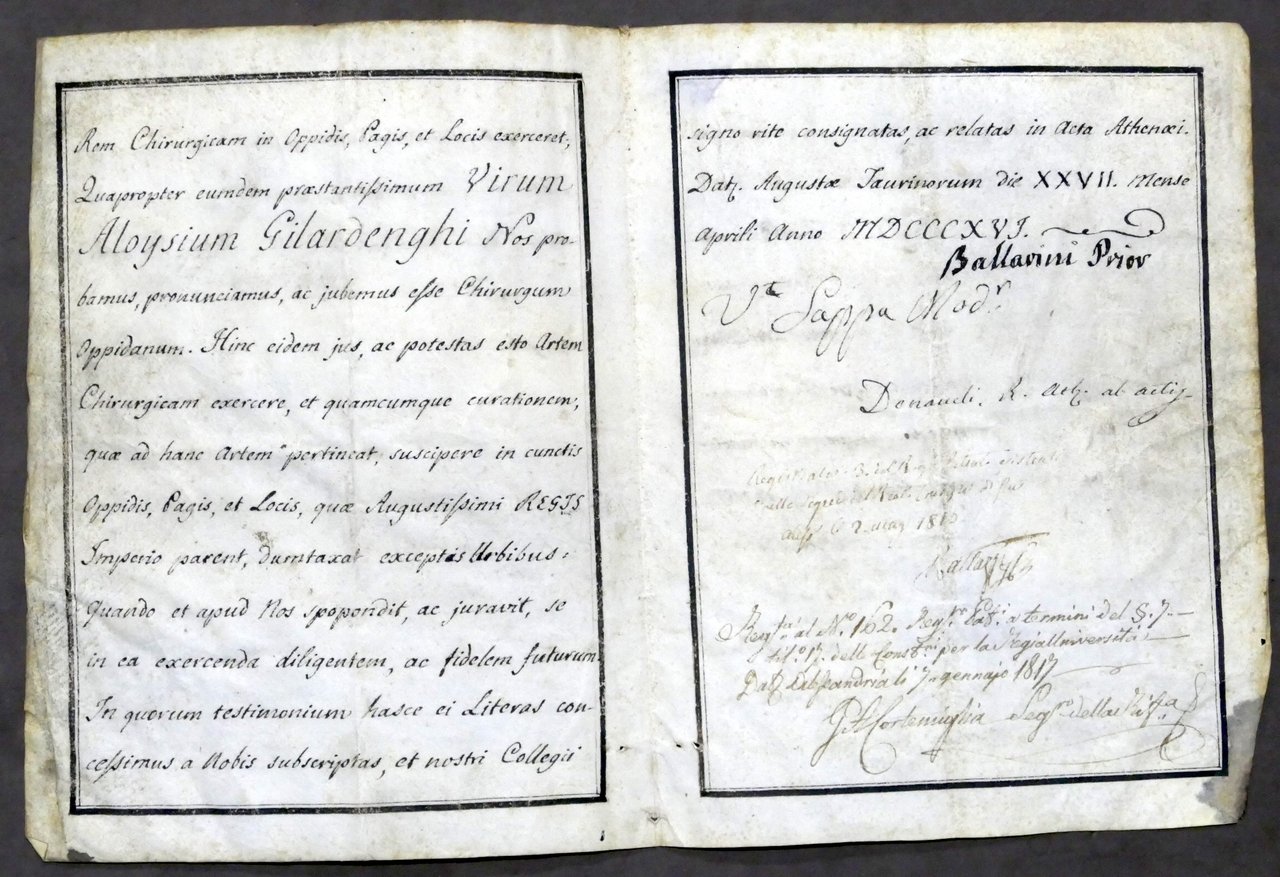 Rem Chirurgicam in Oppidis, Pagis, et Locis exerceret,
Quapropter eumdem præstantissimum Virum
Aloysium Gilardenghi Nos pro-
bamus, pronunciamus, ac jubemus esse Chirurgum
Oppidanum. Hinc eidem jus, ac potestas esto Artem
Chirurgicam exercere, et quamcumque curationem,
quæ ad hanc Artem pertineat, suscipere in cunctis
Oppidis, Pagis, et Locis, quæ Augustissimi REGIS
Imperio parent, dumtaxat exceptis Urbibus:
Quando et apud Nos spopondit, ac juravit, se
in ea exercenda diligentem, ac fidelem futurum.
In quorum testimonium hasce ei Literas con-
cessimus a Nobis subscriptas, et nostri Collegii
signo rite consignatas, ac relatas in Acta Athenæi.
Dat. Augustæ Taurinorum die XXVII. Mense
Aprili Anno MDCCCXVI.
Ballarini Prior
Vt Sappa Modr
Donaudi. R. Ath. ab actis
Regta al No 162. Regro
per la Regia Università
7 gennajo 1817
Segro della